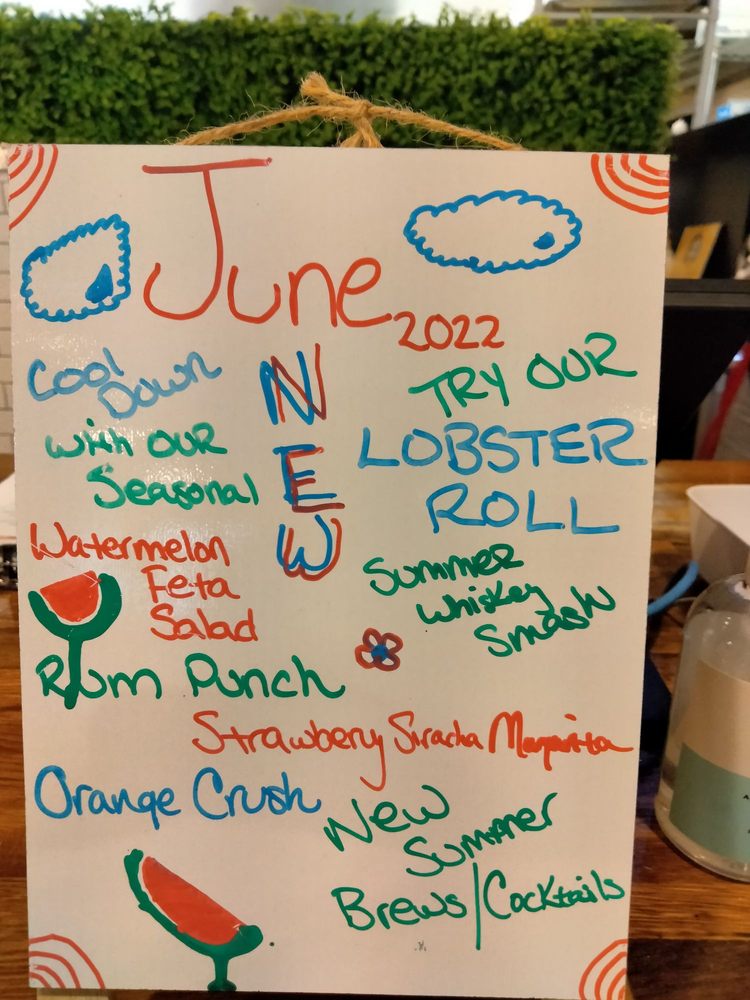 June
2022
NEW
Cool
Down
with our
Seasonal
Watermelon
Feta
Salad
TRY OUR
LOBSTER
ROLL
Summer
Whiskey
Smash
Rum Punch
Strawbery Siracha Margarita
Orange Crush
New
Summer
Brews/Cocktails